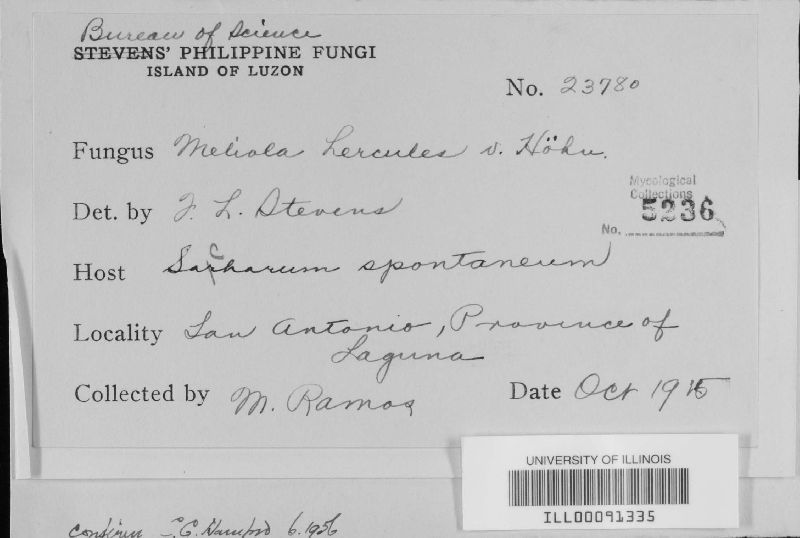 Bureau of Science
STEVENS' PHILIPPINE FUNGI
ISLAND OF LUZON
No. 23780
Fungus Meliola hercules v. Höhn.
Mycological
Collections
Det. by F. L. Stevens
No. 5236
Host Saccharum spontaneum
Locality San Antonio, Province of
Laguna
Collected by M. Ramos
Date Oct 1915
UNIVERSITY OF ILLINOIS
ILL00091335
confirm C.G. Hansford 6.1956